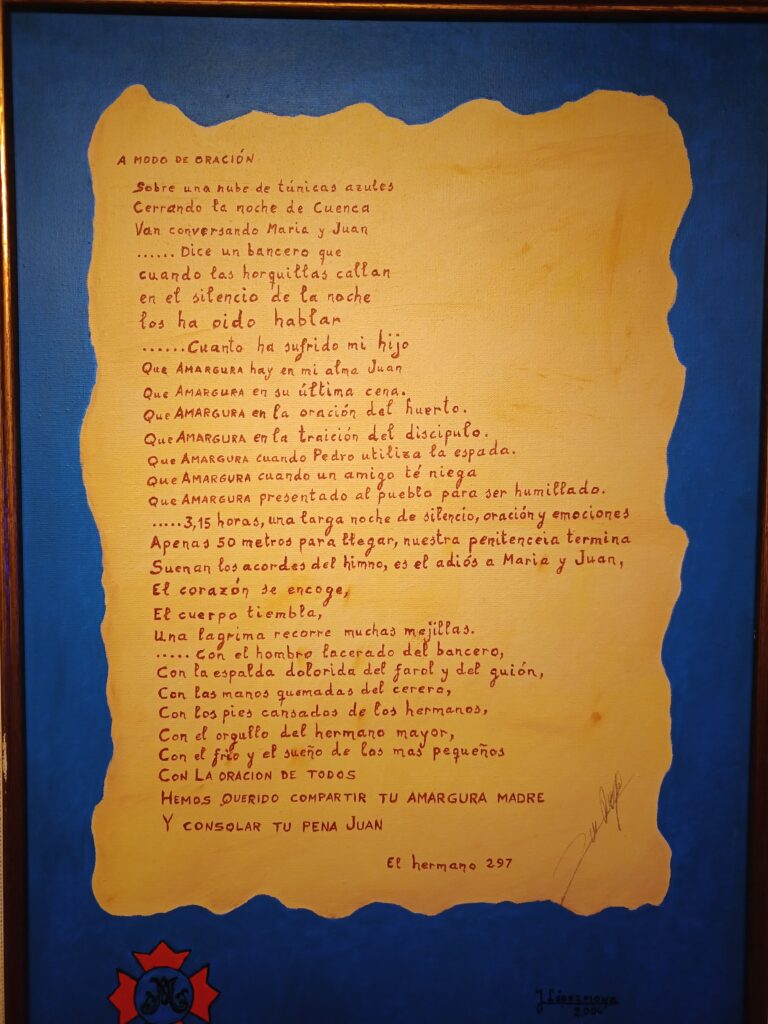 A MODO DE ORACIÓN
Sobre una nube de túnicas azules
Cerrando la noche de Cuenca
Van conversando Maria y Juan
...... Dice un bancero que
cuando las horquillas callan
en el silencio de la noche
los ha oido hablar
......Cuanto ha sufrido mi hijo
Que AMARGURA hay en mi alma Juan
Que AMARGURA en su última cena.
Que AMARGURA en la oración del huerto.
Que AMARGURA en la traición del discipulo.
Que AMARGURA cuando Pedro utiliza la espada.
Que AMARGURA cuando un amigo té niega
Que AMARGURA presentado al pueblo para ser humillado.
.....3,15 horas, una larga noche de silencio, oración y emociones
Apenas 50 metros para llegar, nuestra penitenceia termina
Suenan los acordes del himno, es el adiós a Maria y Juan,
El corazón se encoge,
El cuerpo tiembla,
Una lagrima recorre muchas mejillas.
..... Con el hombro lacerado del bancero,
Con la espalda dolorida del farol y del guión,
Con las manos quemadas del cerero,
Con los pies cansados de los hermanos,
Con el orgullo del hermano mayor,
Con el frio y el sueño de los mas pequeños
CON LA ORACION DE TODOS
HEMOS QUERIDO COMPARTIR TU AMARGURA MADRE
Y CONSOLAR TU PENA JUAN
El hermano 297
J López moya
2.004